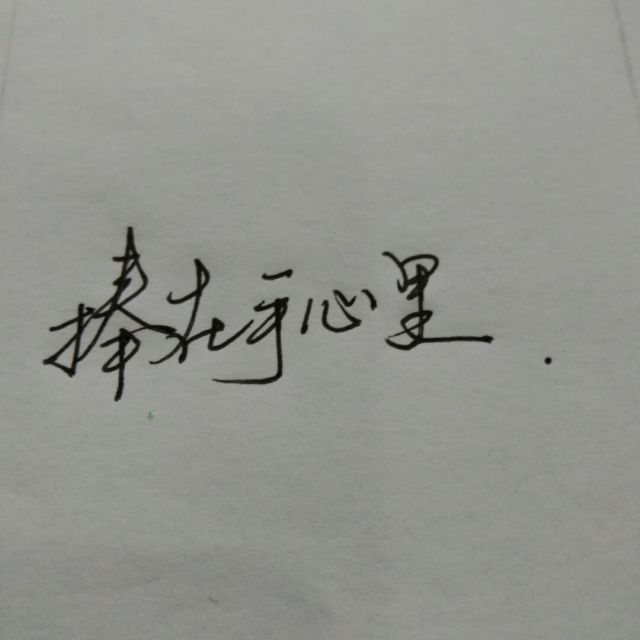 捧在手心里.